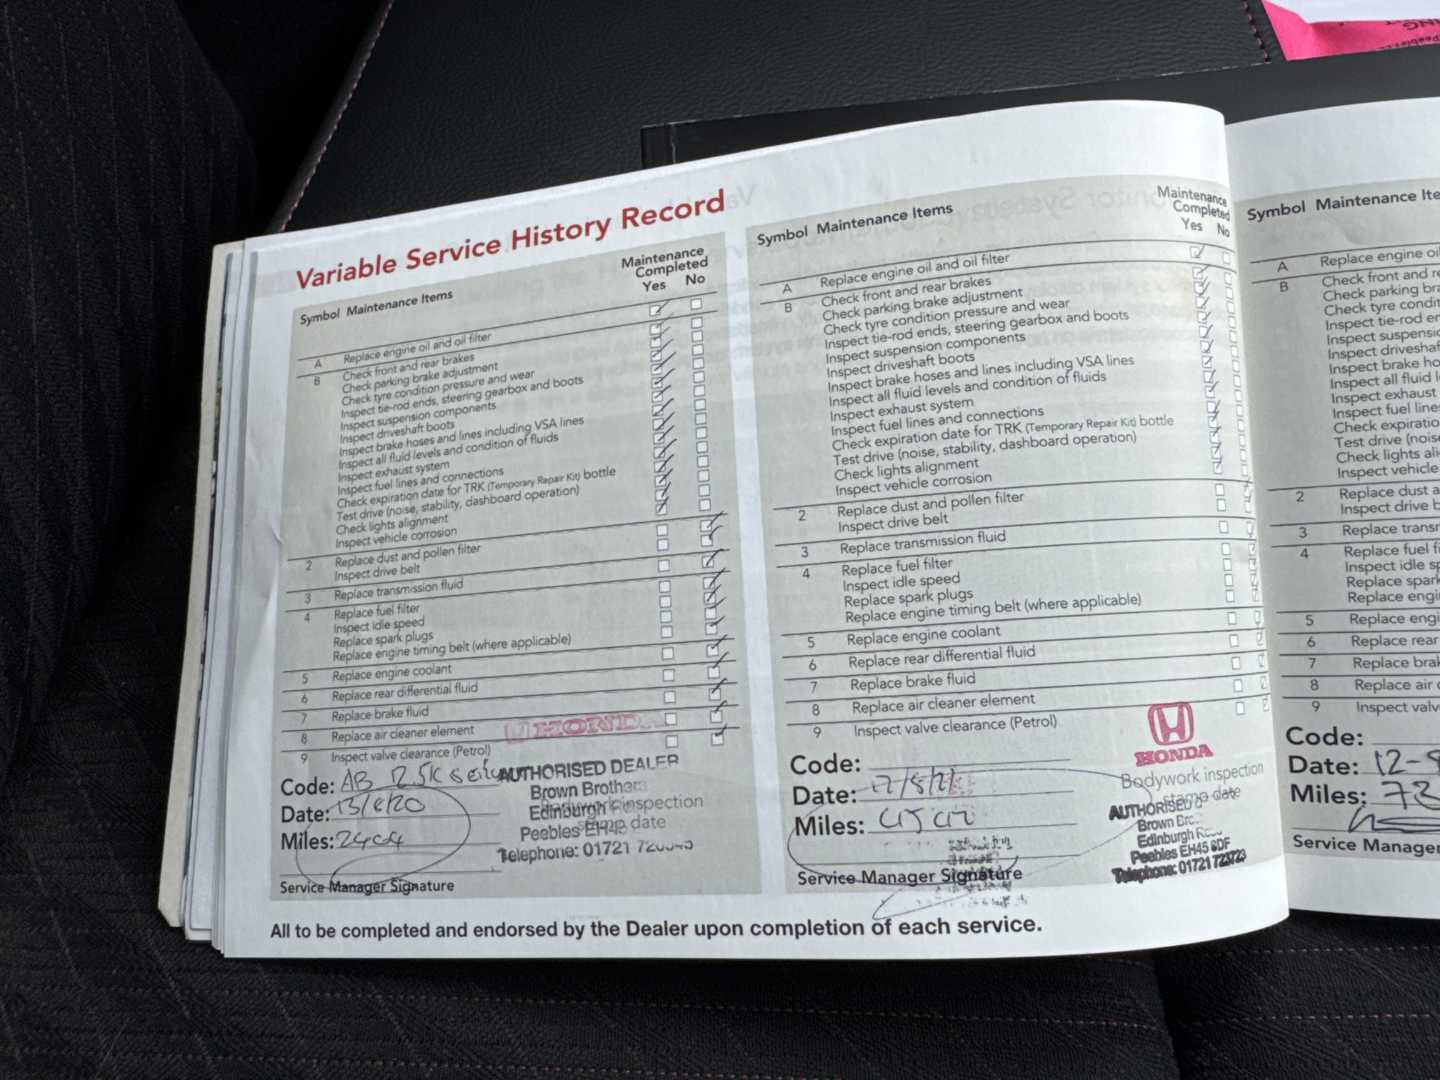 Variable Service History Record
Symbol Maintenance Items
Maintenance
Completed
Yes No
A Replace engine oil and oil filter
B Check front and rear brakes
Check parking brake adjustment
Check tyre condition pressure and wear
Inspect tie-rod ends, steering gearbox and boots
Inspect suspension components
Inspect driveshaft boots
Inspect brake hoses and lines including VSA lines
Inspect all fluid levels and condition of fluids
Inspect exhaust system
Inspect fuel lines and connections
Check expiration date for TRK (Temporary Repair Kit) bottle
Test drive (noise, stability, dashboard operation)
Check lights alignment
Inspect vehicle corrosion
2 Replace dust and pollen filter
Inspect drive belt
3 Replace transmission fluid
4 Replace fuel filter
Inspect idle speed
Replace spark plugs
Replace engine timing belt (where applicable)
5 Replace engine coolant
6 Replace rear differential fluid
7 Replace brake fluid
8 Replace air cleaner element
9 Inspect valve clearance (Petrol)
HONDA
Code: AB 12.5K
Date: 13/6/20
Miles:
Service Manager Signature
AUTHORISED DEALER
Brown Brothers
Edinburgh
Peebles
Telephone: 01721
inspection
stamp date
Symbol Maintenance Items
Maintenance
Completed
Yes No
A Replace engine oil and oil filter
B Check front and rear brakes
Check parking brake adjustment
Check tyre condition pressure and wear
Inspect tie-rod ends, steering gearbox and boots
Inspect suspension components
Inspect driveshaft boots
Inspect brake hoses and lines including VSA lines
Inspect all fluid levels and condition of fluids
Inspect exhaust system
Inspect fuel lines and connections
Check expiration date for TRK (Temporary Repair Kit) bottle
Test drive (noise, stability, dashboard operation)
Check lights alignment
Inspect vehicle corrosion
2 Replace dust and pollen filter
Inspect drive belt
3 Replace transmission fluid
4 Replace fuel filter
Inspect idle speed
Replace spark plugs
Replace engine timing belt (where applicable)
5 Replace engine coolant
6 Replace rear differential fluid
7 Replace brake fluid
8 Replace air cleaner element
9 Inspect valve clearance (Petrol)
HONDA
Code:
Date:
Miles:
Service Manager Signature
Bodywork inspection
stamp date
AUTHORISED
Brown
Edinburgh
Peebles EH45 8DF
Telephone: 01721 723723
All to be completed and endorsed by the Dealer upon completion of each service.
Symbol Maintenance
A Replace engine
B Check front and
Check parking
Check tyre
Inspect tie-rod
Inspect
Inspect
Inspect brake
Inspect all fluid
Inspect exhaust
Inspect fuel
Check
Test drive
Check lights
Inspect vehicle
2 Replace dust
Inspect drive
3 Replace
4 Replace fuel
Inspect idle
Replace
Replace
5 Replace
6 Replace rear
7 Replace
8 Replace air
9 Inspect
Code:
Date:
Miles:
Service Manager